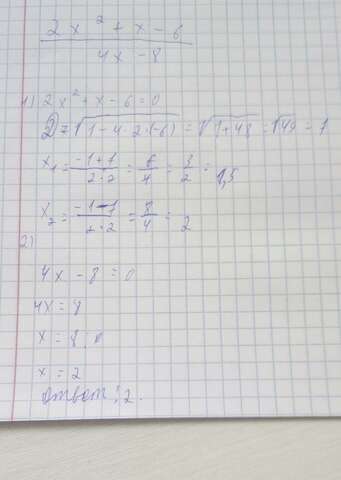 2x² + x - 6
4x - 8
1) 2x² + x - 6 = 0
D = √1 - 4 · 2 · (-6) = √1 + 48 = √49 = 7
x₁ = -1 + 7 / 2 · 2 = 6 / 4 = 3 / 2 = 1,5
x₂ = -1 - 7 / 2 · 2 = 8 / 4 = 2
2)
4x - 8 = 0
4x = 8
x = 8
x = 2
ответ: 2.